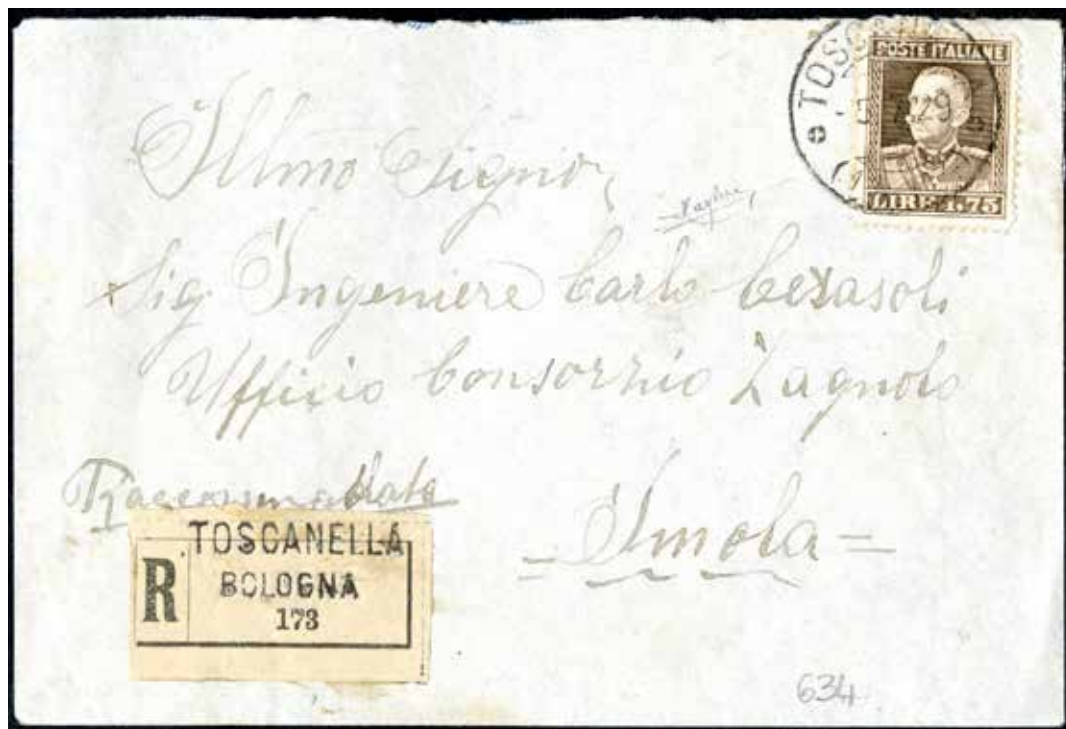 TOSCAN
5 29
POSTE ITALIANE
LIRE 1.75
Illmo Signor
Sig. Ingeniere Carlo Cerasoli
Ufficio Consorzio Zagnolo
Raccomandata
TOSCANELLA
R BOLOGNA
173
= Imola =
634